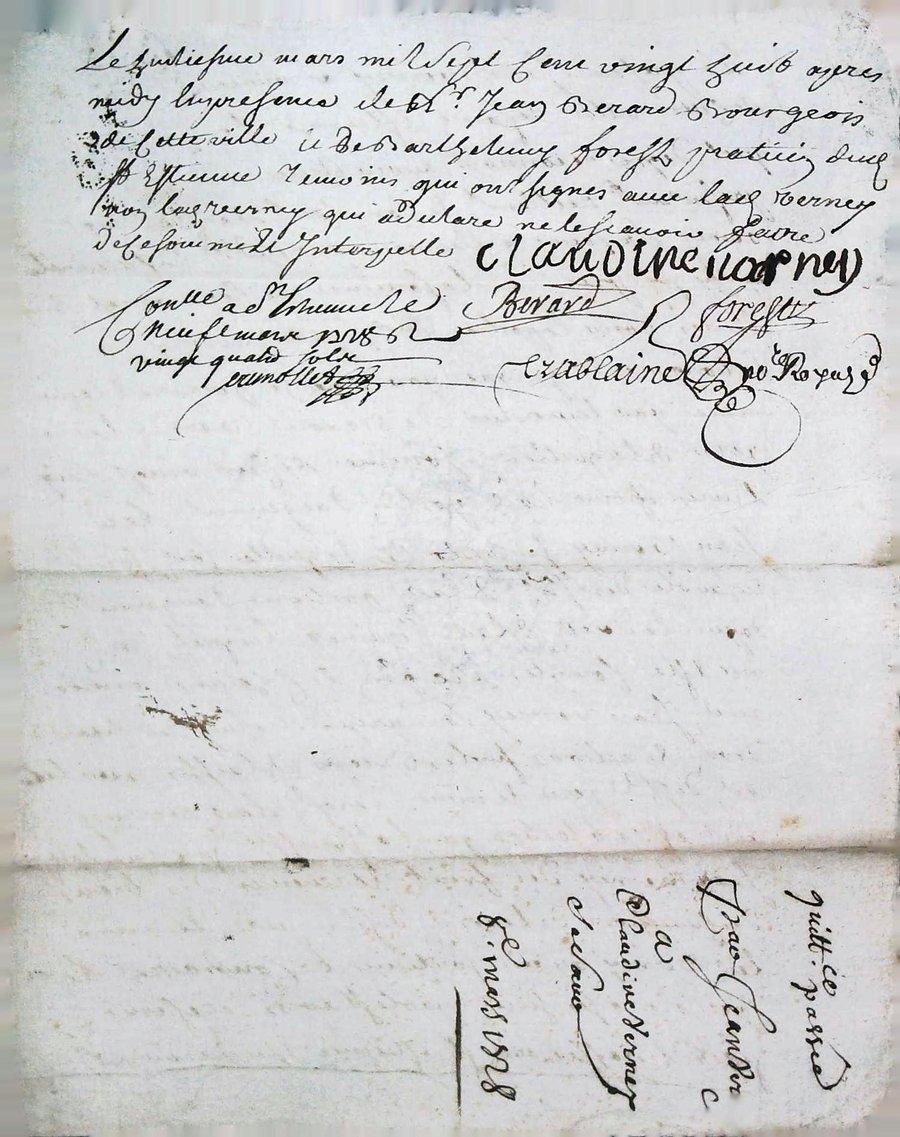 Le huitiesme mars mil sept Cent vingt huit apres
midy En presence de Sr. Jean Berard Bourgeois
de Cette ville et de Barthelemy forest praticien dud
St Estienne temoins qui ont signes avec lad verney
non led verney qui a declare ne le scavoir faire
de Ce sommé et Interpellé
claudine varney
Berard
forest
Conlle a St Estienne le
neuf mars 1728
vingt quatre sols
Crablaine
no.re Royal
quitt.ce passée
par Jean Ver
a
Claudine Verney
Sa
8e. mars 1728